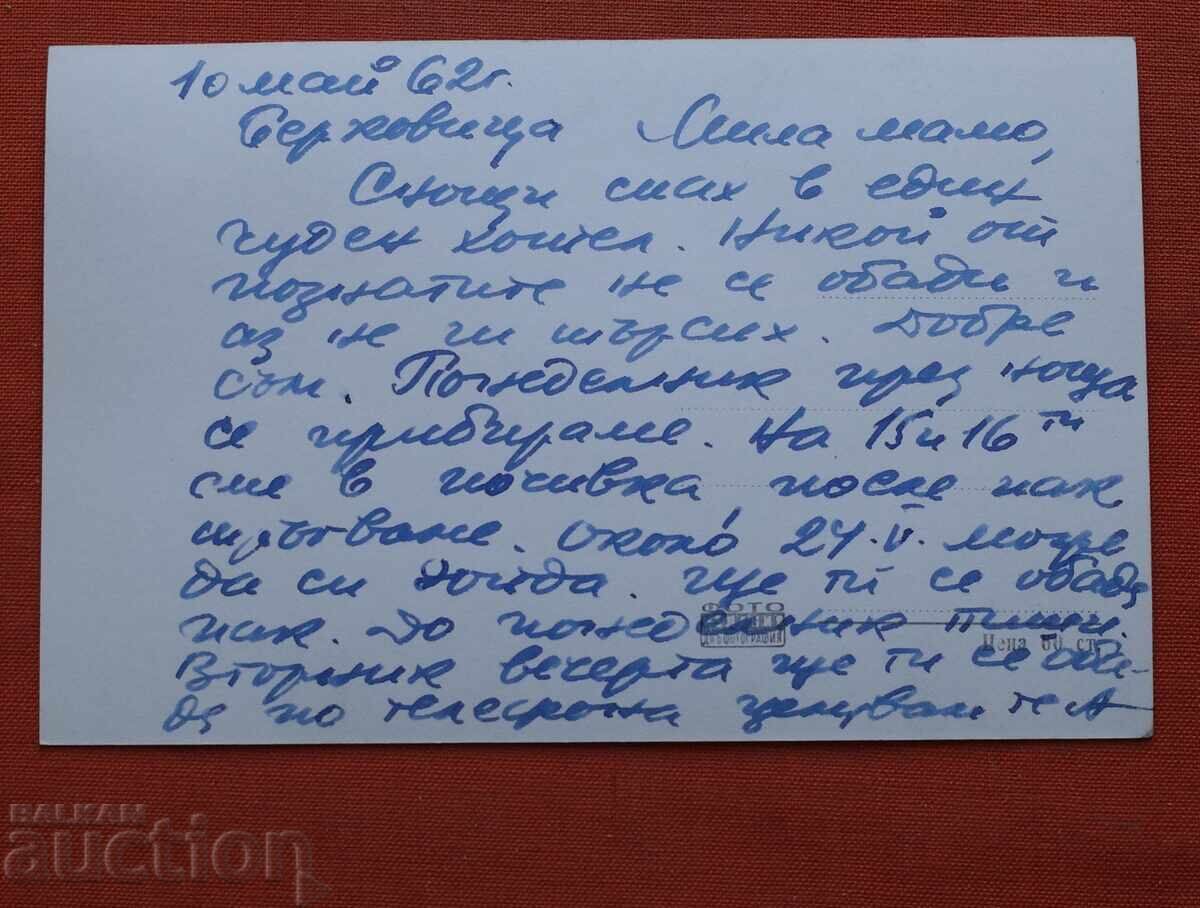 10 май 62г.
Берковица Мила мамо,
Снощи спах в един
чуден хотел. Никой от
познатите не се обади и
аз не ги търсих. Добре
съм. Понеделник през нощта
се прибираме. На 15 и 16ти
сме в почивка после пак
пътуване. около 24.V. може
да си дойда. ще ти се обадя
пак. До понеделник пиши.
Вторник вечерта ще ти се оба-
дя по телефона целувам те А
ФОТО
ФОТОГРАФИЯ
Цена 60 ст.
BALKAN
auction